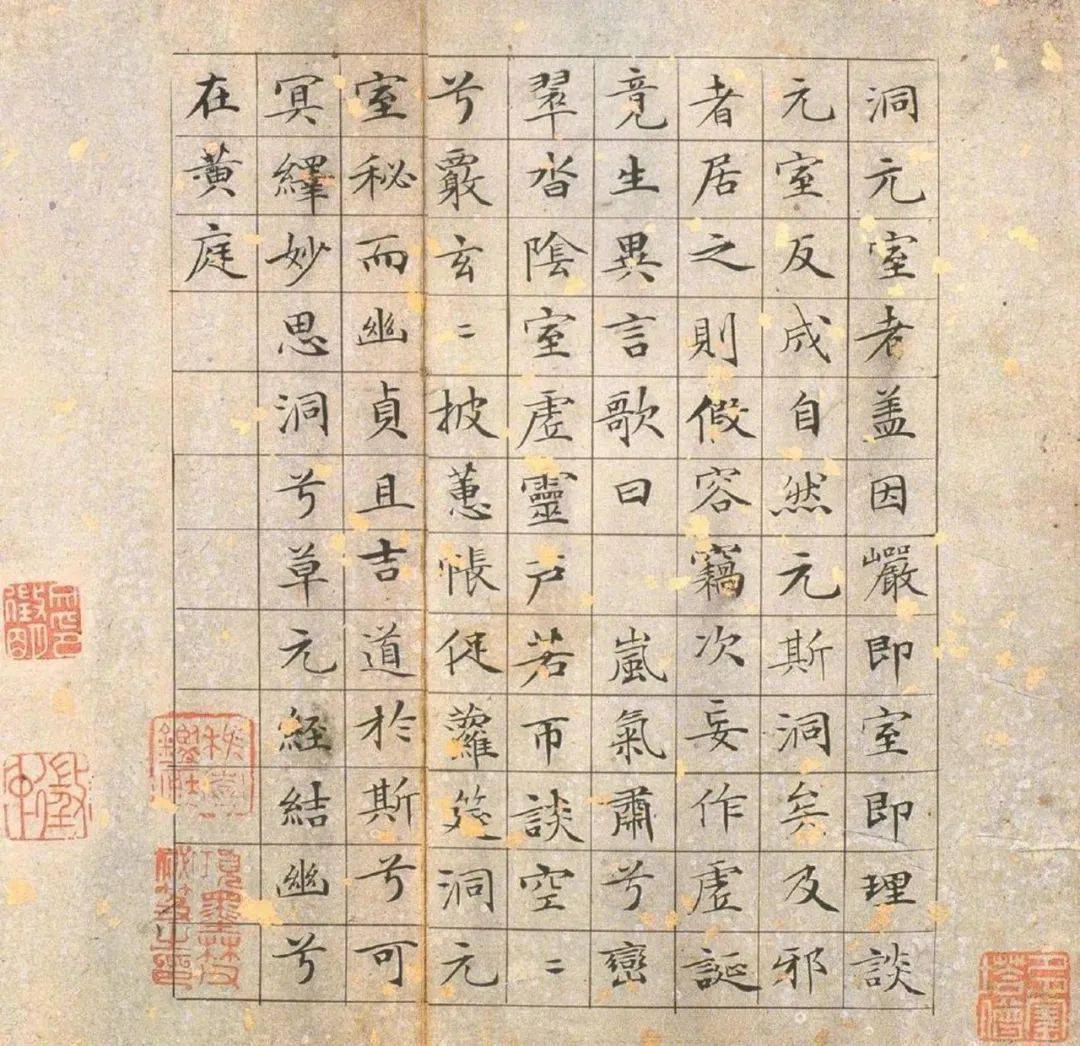 洞元室者盖因巗即室即理談
元室反成自然元斯洞矣及邪
者居之則假容竊次妄作虛誕
竟生異言歌曰 嵐氣肅兮巒
翠沓陰室虛靈戶若帀談空〻
兮覈玄〻披蕙帳促蘿筵洞元
室秘而幽貞且吉道於斯兮可
冥繹妙思洞兮草元經結幽兮
在黃庭
項墨林父
秘笈之印